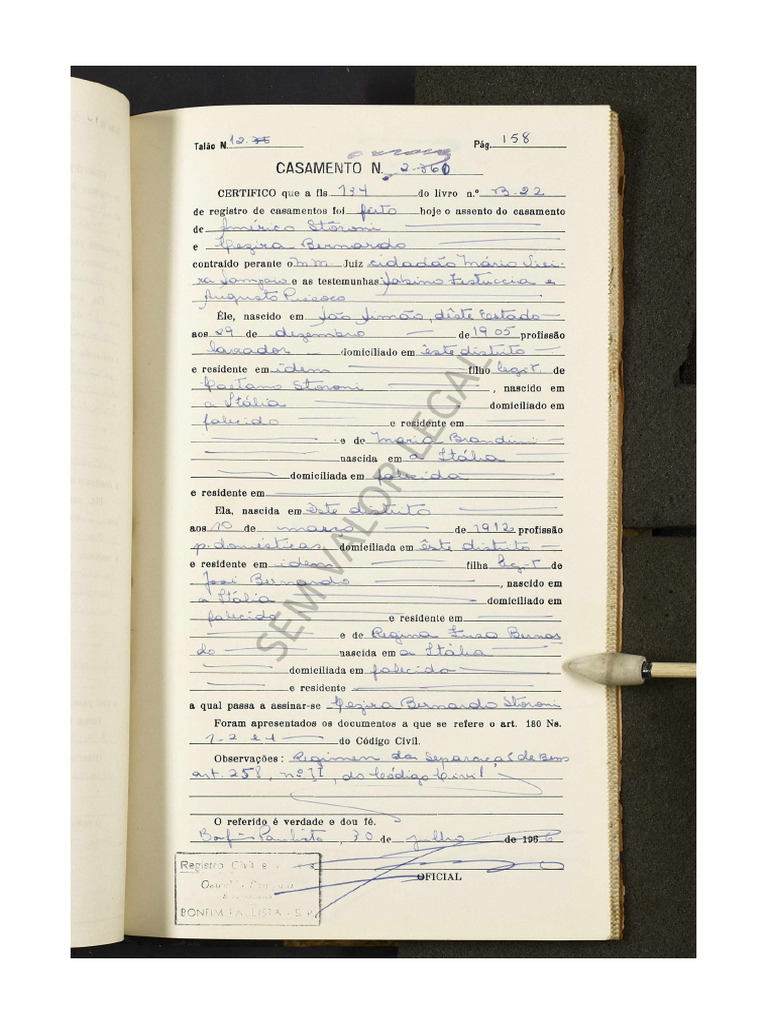 Talão N. 12. Pág. 158
CASAMENTO N. 2.360
CERTIFICO que a fls 134 do livro n.º B.22
de registro de casamentos foi feito hoje o assento do casamento
de Américo Störoni
e Cezira Bernardo
contraído perante o m.m. Juiz cidadão Mário Viei-
ra Sampaio e as testemunhas: Sabino Testuccia e
Augusto
Éle, nascido em São Simão, dêste Estado
aos 29 de dezembro de 1905 profissão
lavrador domiciliado em êste distrito
e residente em idem filho legt. de
Caetano Storoni , nascido em
a Itália domiciliado em
falecido e residente em
e de Maria Brandini
nascida em a Itália
domiciliada em falecida
e residente em
Ela, nascida em êste distrito
aos 10 de março de 1912 profissão
p. domésticas domiciliada em êste distrito
e residente em idem filha leg-t de
José Bernardo , nascido em
a Itália domiciliado em
falecido e residente em
e de Regina Luza Bernar-
do nascida em a Itália
domiciliada em falecida
e residente
a qual passa a assinar-se Cezira Bernardo Storoni
Foram apresentados os documentos a que se refere o art. 180 Ns.
1-2 e 4 do Código Civil.
Observações: Regimen da Separação de Bens
art. 258, nº II, do Código Civil
O referido é verdade e dou fé.
Bonfim Paulista, 30 de julho de 1966
OFICIAL
Registro Civil e
BONFIM PAULISTA - S.P.
SEM VALOR LEGAL